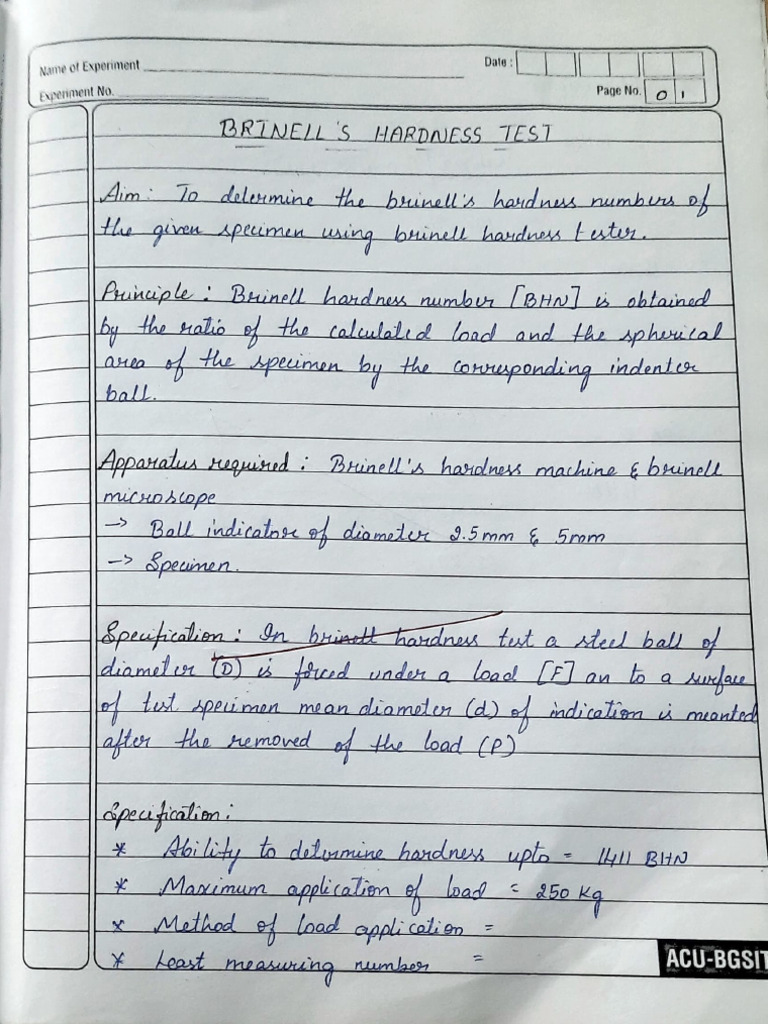 Name of Experiment
Date :
Experiment No.
Page No. 01
BRINELL'S HARDNESS TEST
Aim : To determine the brinell's hardness numbers of
the given specimen using brinell hardness tester.
Principle : Brinell hardness number [BHN] is obtained
by the ratio of the calculated load and the spherical
area of the specimen by the corresponding indenter
ball.
Apparatus required : Brinell's hardness machine & brinell
microscope
→ Ball indicator of diameter 2.5mm & 5mm
→ Specimen.
Specification : In brinell hardness test a steel ball of
diameter (D) is forced under a load [F] an to a surface
of test specimen mean diameter (d) of indication is meanted
after the removed of the load (P)
Specification :
* Ability to determine hardness upto = 1411 BHN
* Maximum application of load = 250 kg
* Method of load application =
* Least measuring number =
ACU-BGSIT